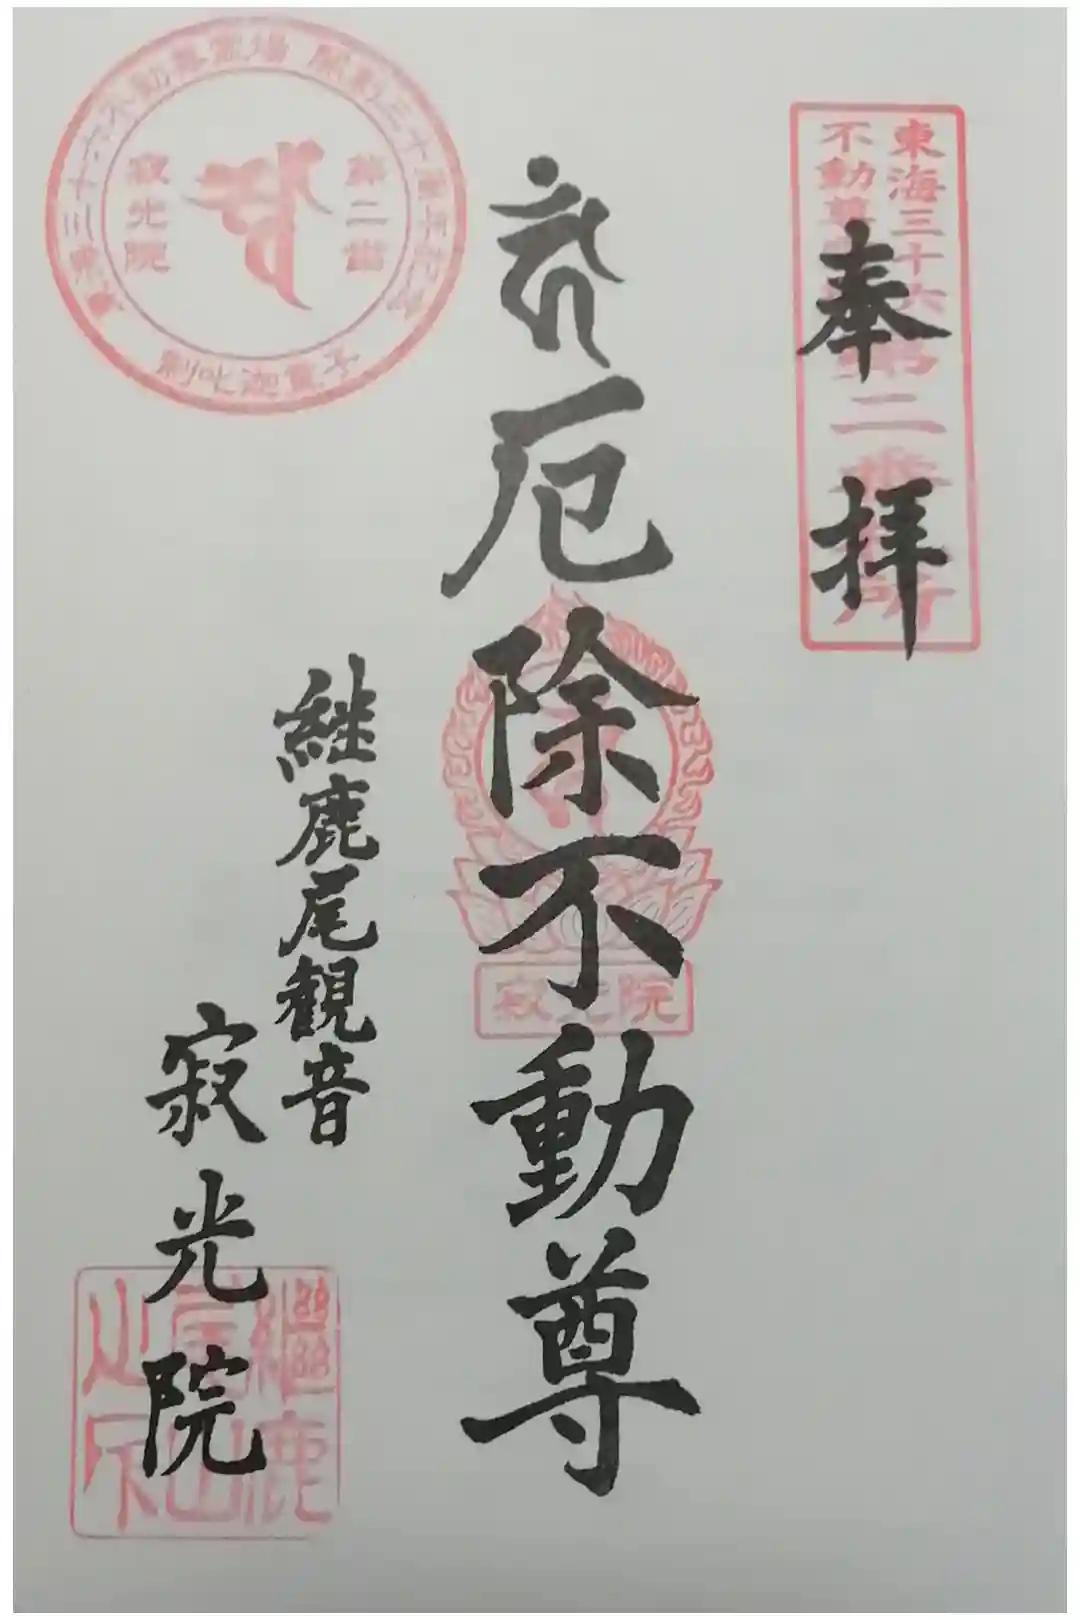 奉拝
東海三十六
不動尊
第二番
所
厄除不動尊
継鹿尾観音
寂光院
第二番
寂光院
制吒迦童子
寂光院